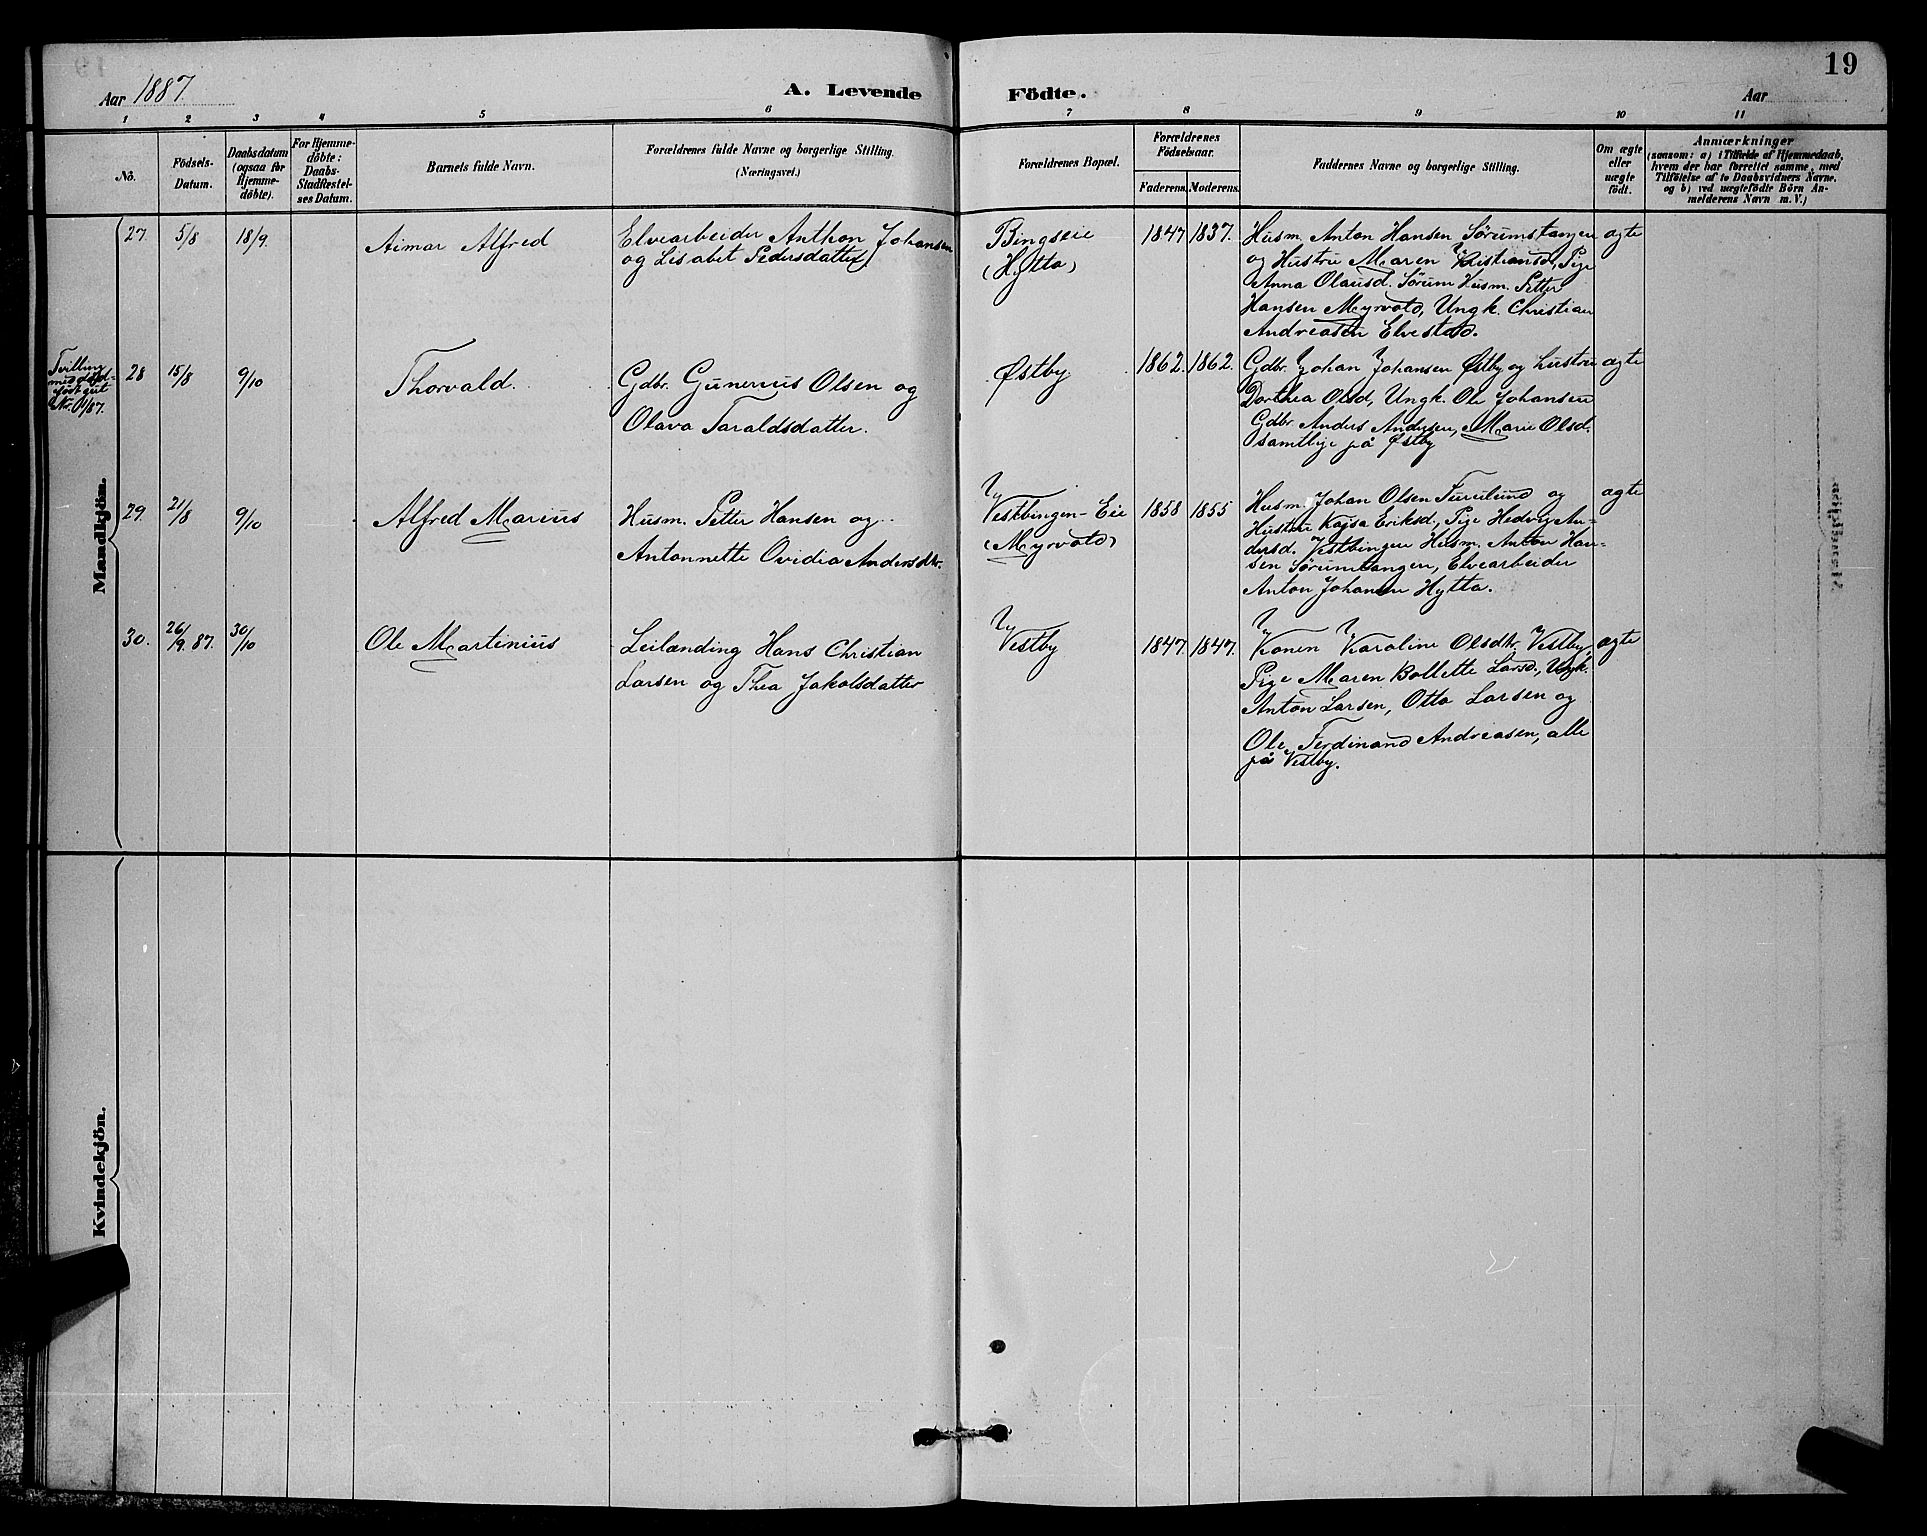 19
Aar 1887.
A. Levende Födte.
Aar
1 2 3 4 5 6 7 8 9 10 11
No.
Födsels-Datum.
Daabsdatum (ogsaa for Hjemme-döbte).
For Hjemme-döbte: Daabs-Stadfæstel-ses Datum.
Barnets fulde Navn.
Forældrenes fulde Navne og borgerlige Stilling.
(Næringsvei.)
Forældrenes Bopæl.
Forældrenes Födselsaar.
Faderens. Moderens.
Faddernes Navne og borgerlige Stilling.
Om ægte eller uægte födt.
Anmærkninger
(saasom: a) i Tilfælde af Hjemmedaab,
hvem der har forrettet samme, med
Tilföielse af to Daabsvidners Navne.
og b) ved uægtefödte Börn An-
melderens Navn m. V.)
Mandkjön.
27. 5/8 18/9. Aimar Alfred
Elvearbeider Anthon Johansen
og Lisabet Pedersdatter
Bingseie
(Hytta)
1847 1837.
Husm. Anton Hansen Sørumstangen
og Hustru Maren Kristiansd., Pige
Anna Olausd. Sørum Husm. Petter
Hansen Myrvold, Ungk. Christian
Andreasen Elvestad.
ægte
Tvilling
med
Nr.
28 15/8 9/10 Thorvald.
Gdbr. Gunerius Olsen og
Olava Taraldsdatter.
Østby.
1862. 1862.
Gdbr. Johan Johansen Østby og hustru
Dorthea Olsd, Ungk. Ole Johansen
Gdbr. Anders Andersen, Marie Olsd.
samtlige på Østby
ægte
29. 21/8 9/10 Alfred Marius
Husm. Petter Hansen og
Antonnette Ovidia Andersdtr.
Vestbingen-Eie
(Myrvold)
1858 1855
Husm. Johan Olsen Furulund og
Hustru Kajsa Eriksd., Pige Hedvig An-
dersd. Vestbingen Husm. Anton Han-
sen Sørumtangen, Elvearbeider
Anton Johansen Hytta.
ægte
30. 26/9. 87. 30/10 Ole Martinius
Leilænding Hans Christian
Larsen og Thea Jakobsdatter
Vestby
1847. 1847.
Konen Karoline Olsdtr. Vestby,
Pige Maren Bollette Larsd., Ungk.
Anton Larsen, Otto Larsen og
Ole Ferdinand Andreasen, alle
på Vestby.
ægte
Kvindekjön.